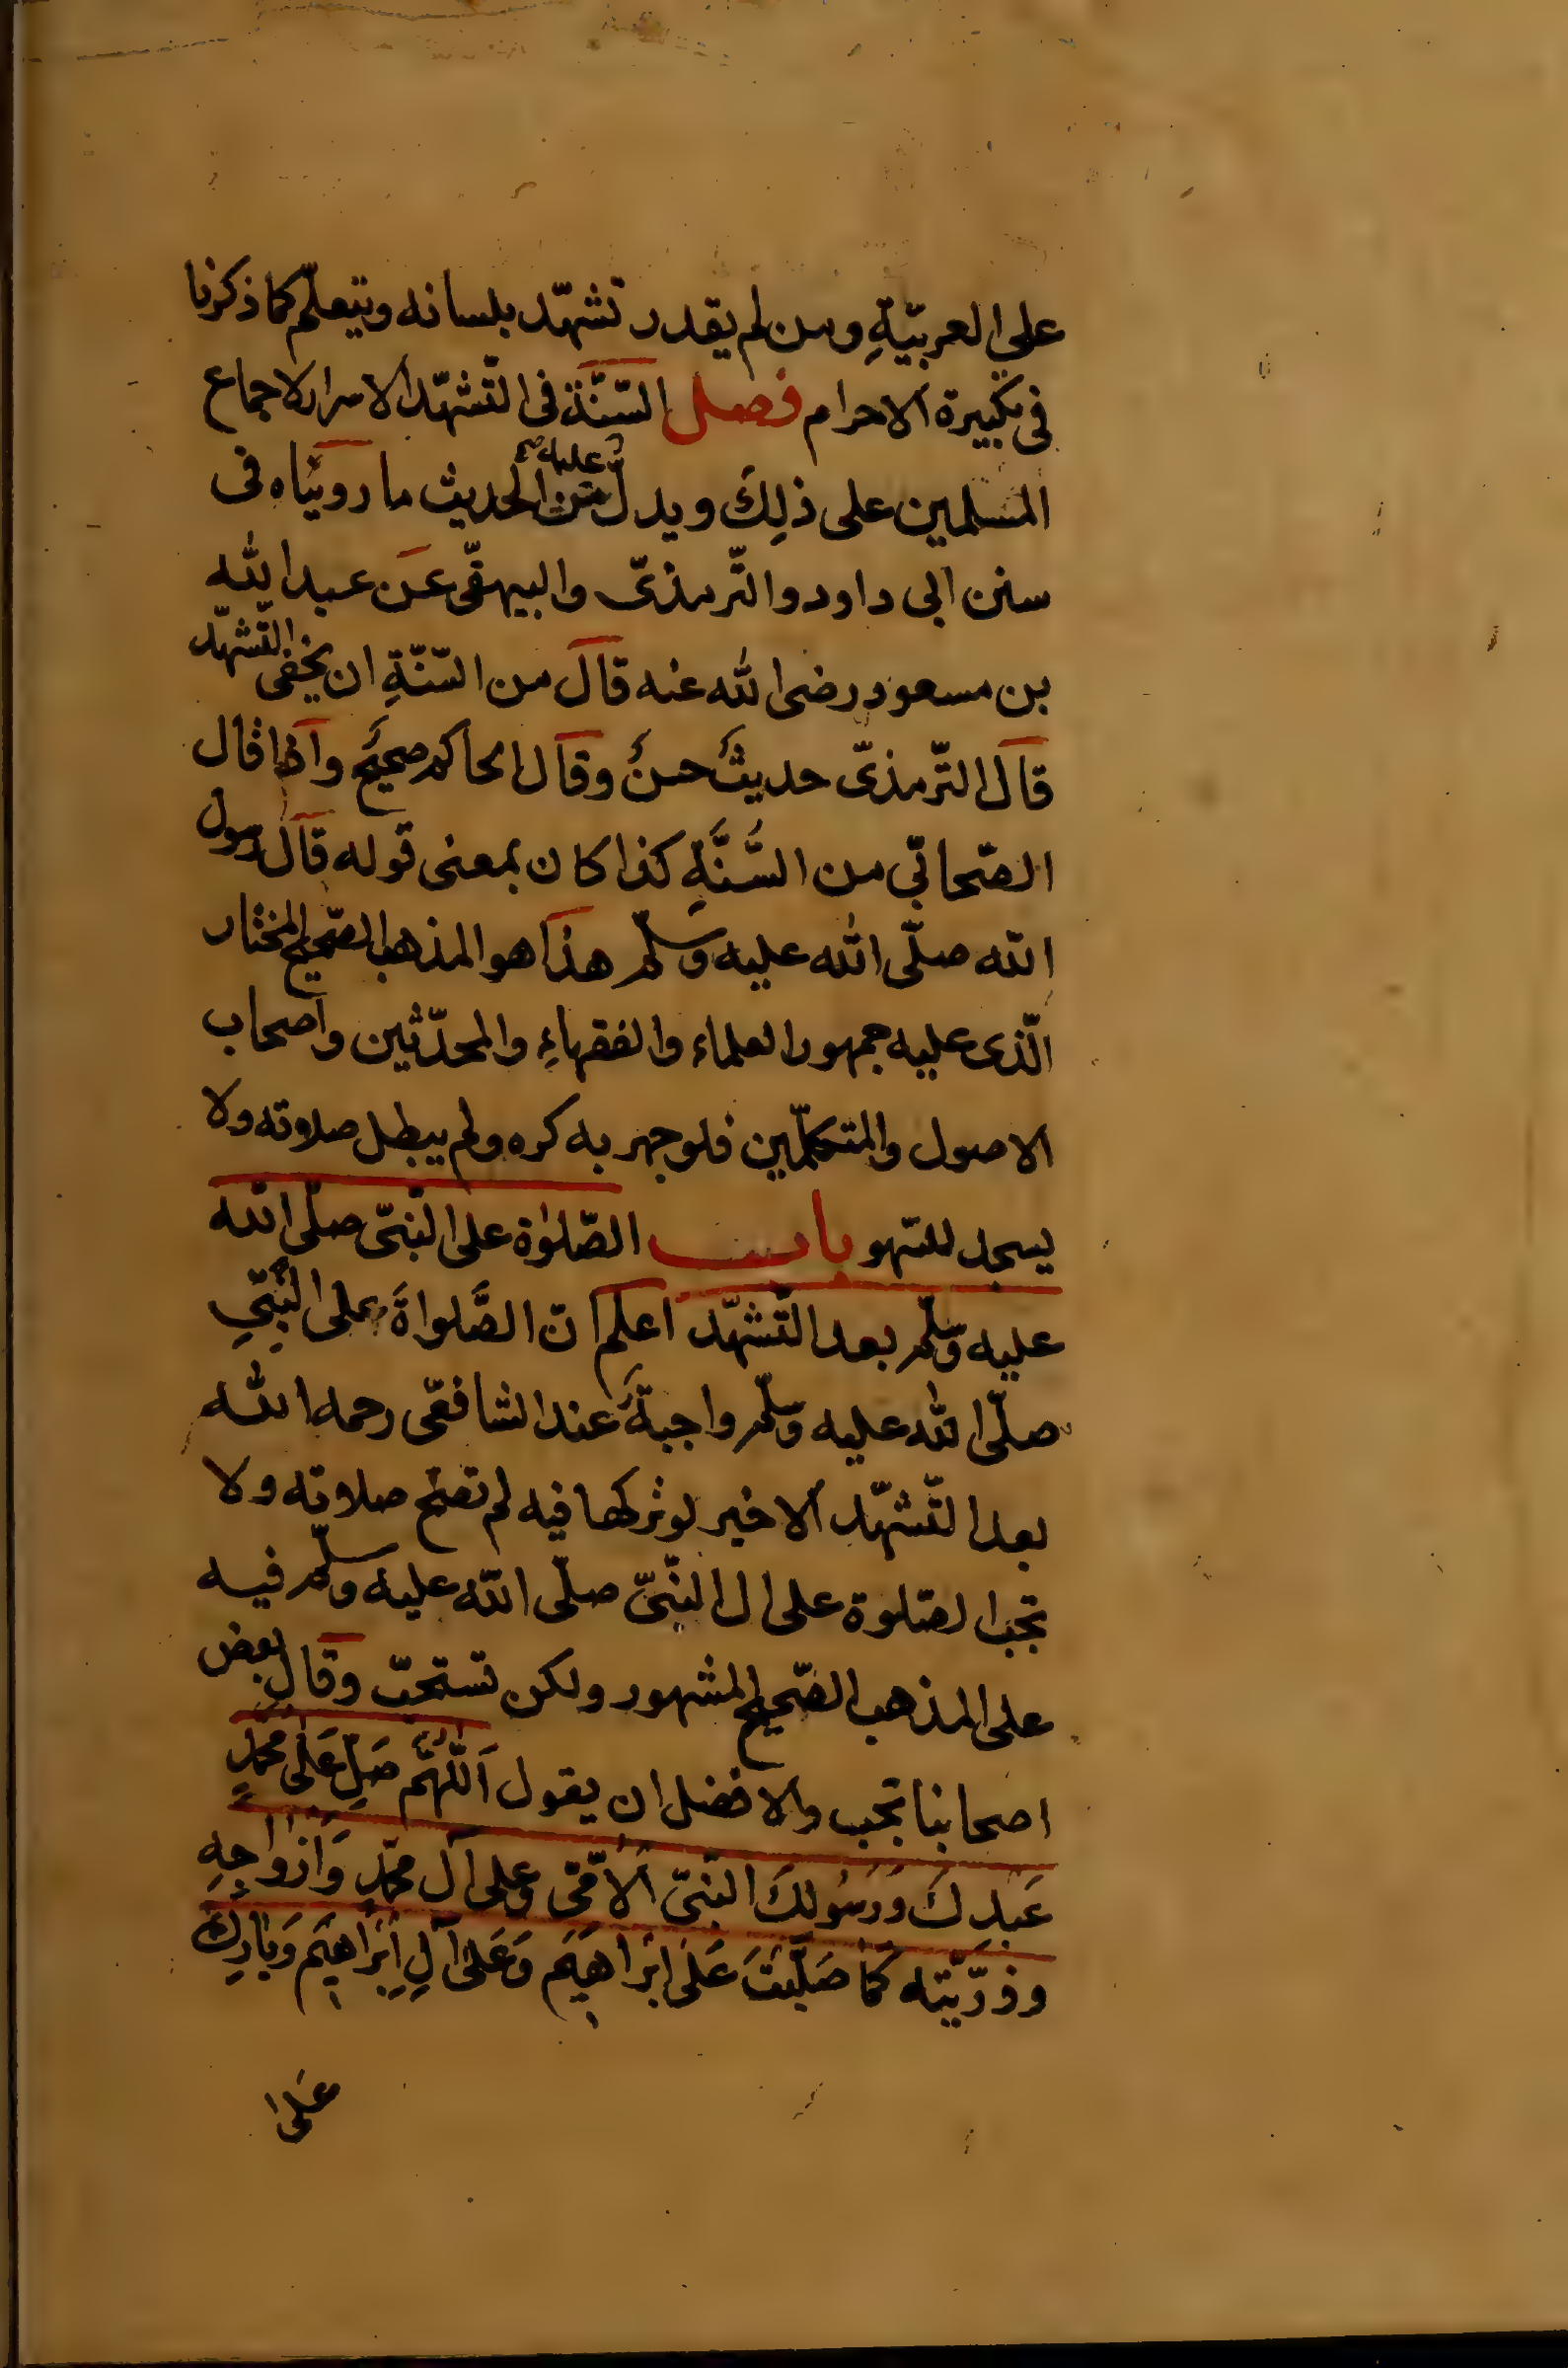 على العربيّةِ ومن لم يقدر تشهّد بلسانه ويتعلّم كما ذكرنا
فى تكبيرة الاحرام فصل السّنّة فى التّشهّد الاسرار لاجماع
المسلمين على ذلِكَ ويدلّ عليه من الحديث ما رويناه فى
سنن ابى داود والتّرمذىّ والبيهقىّ عن عبد الله
بن مسعود رضى الله عنه قال من السّنّةِ ان يخفى التّشهّد
قال التّرمذىّ حديثٌ حسنٌ وقال الحاكم صحيحٌ واذا قال
الصّحابىّ من السُّنَّةِ كذا كان بمعنى قوله قال رسول
الله صلّى الله عليه وسلّم هذا هو المذهب الصّحيح المختار
الّذى عليه جمهور العلماء والفقهاءِ والمحدّثين واصحاب
الاصول والمتكلّمين فلو جهر به كره ولم يبطل صلاوته ولا
يسجد للسّهو باب الصّلوٰة على النّبىّ صلّى الله
عليه وسلّم بعد التّشهّد اعلم انّ الصَّلواةَ على النَّبىِّ
صلّى الله عليه وسلّم واجبةٌ عند الشافعّى رحمه الله
بعد التّشهّد الاخير لو تركها فيه لم تصحّ صلاوته ولا
تجب الصّلوة على ال النّبىّ صلّى الله عليه وسلّم فيه
على المذهب الصّحيح المشهور ولكن تستحبّ وقال بعض
اصحابنا تجب والافضل ان يقول اَللّٰهُمَّ صَلِّ عَلٰى محمّدٍ
عَبْدِكَ وَرَسُولِكَ النّبىّ الاُمّىّ وعلى آل محمّد وَاَزْوَاجِهِ
وذرّيّته كَمَا صَلَّيْتَ عَلٰى اِبْرَاهِيْمَ وَعَلٰى آلِ اِبْرَاهِيْمَ وَبَارِكْ
عَلٰى